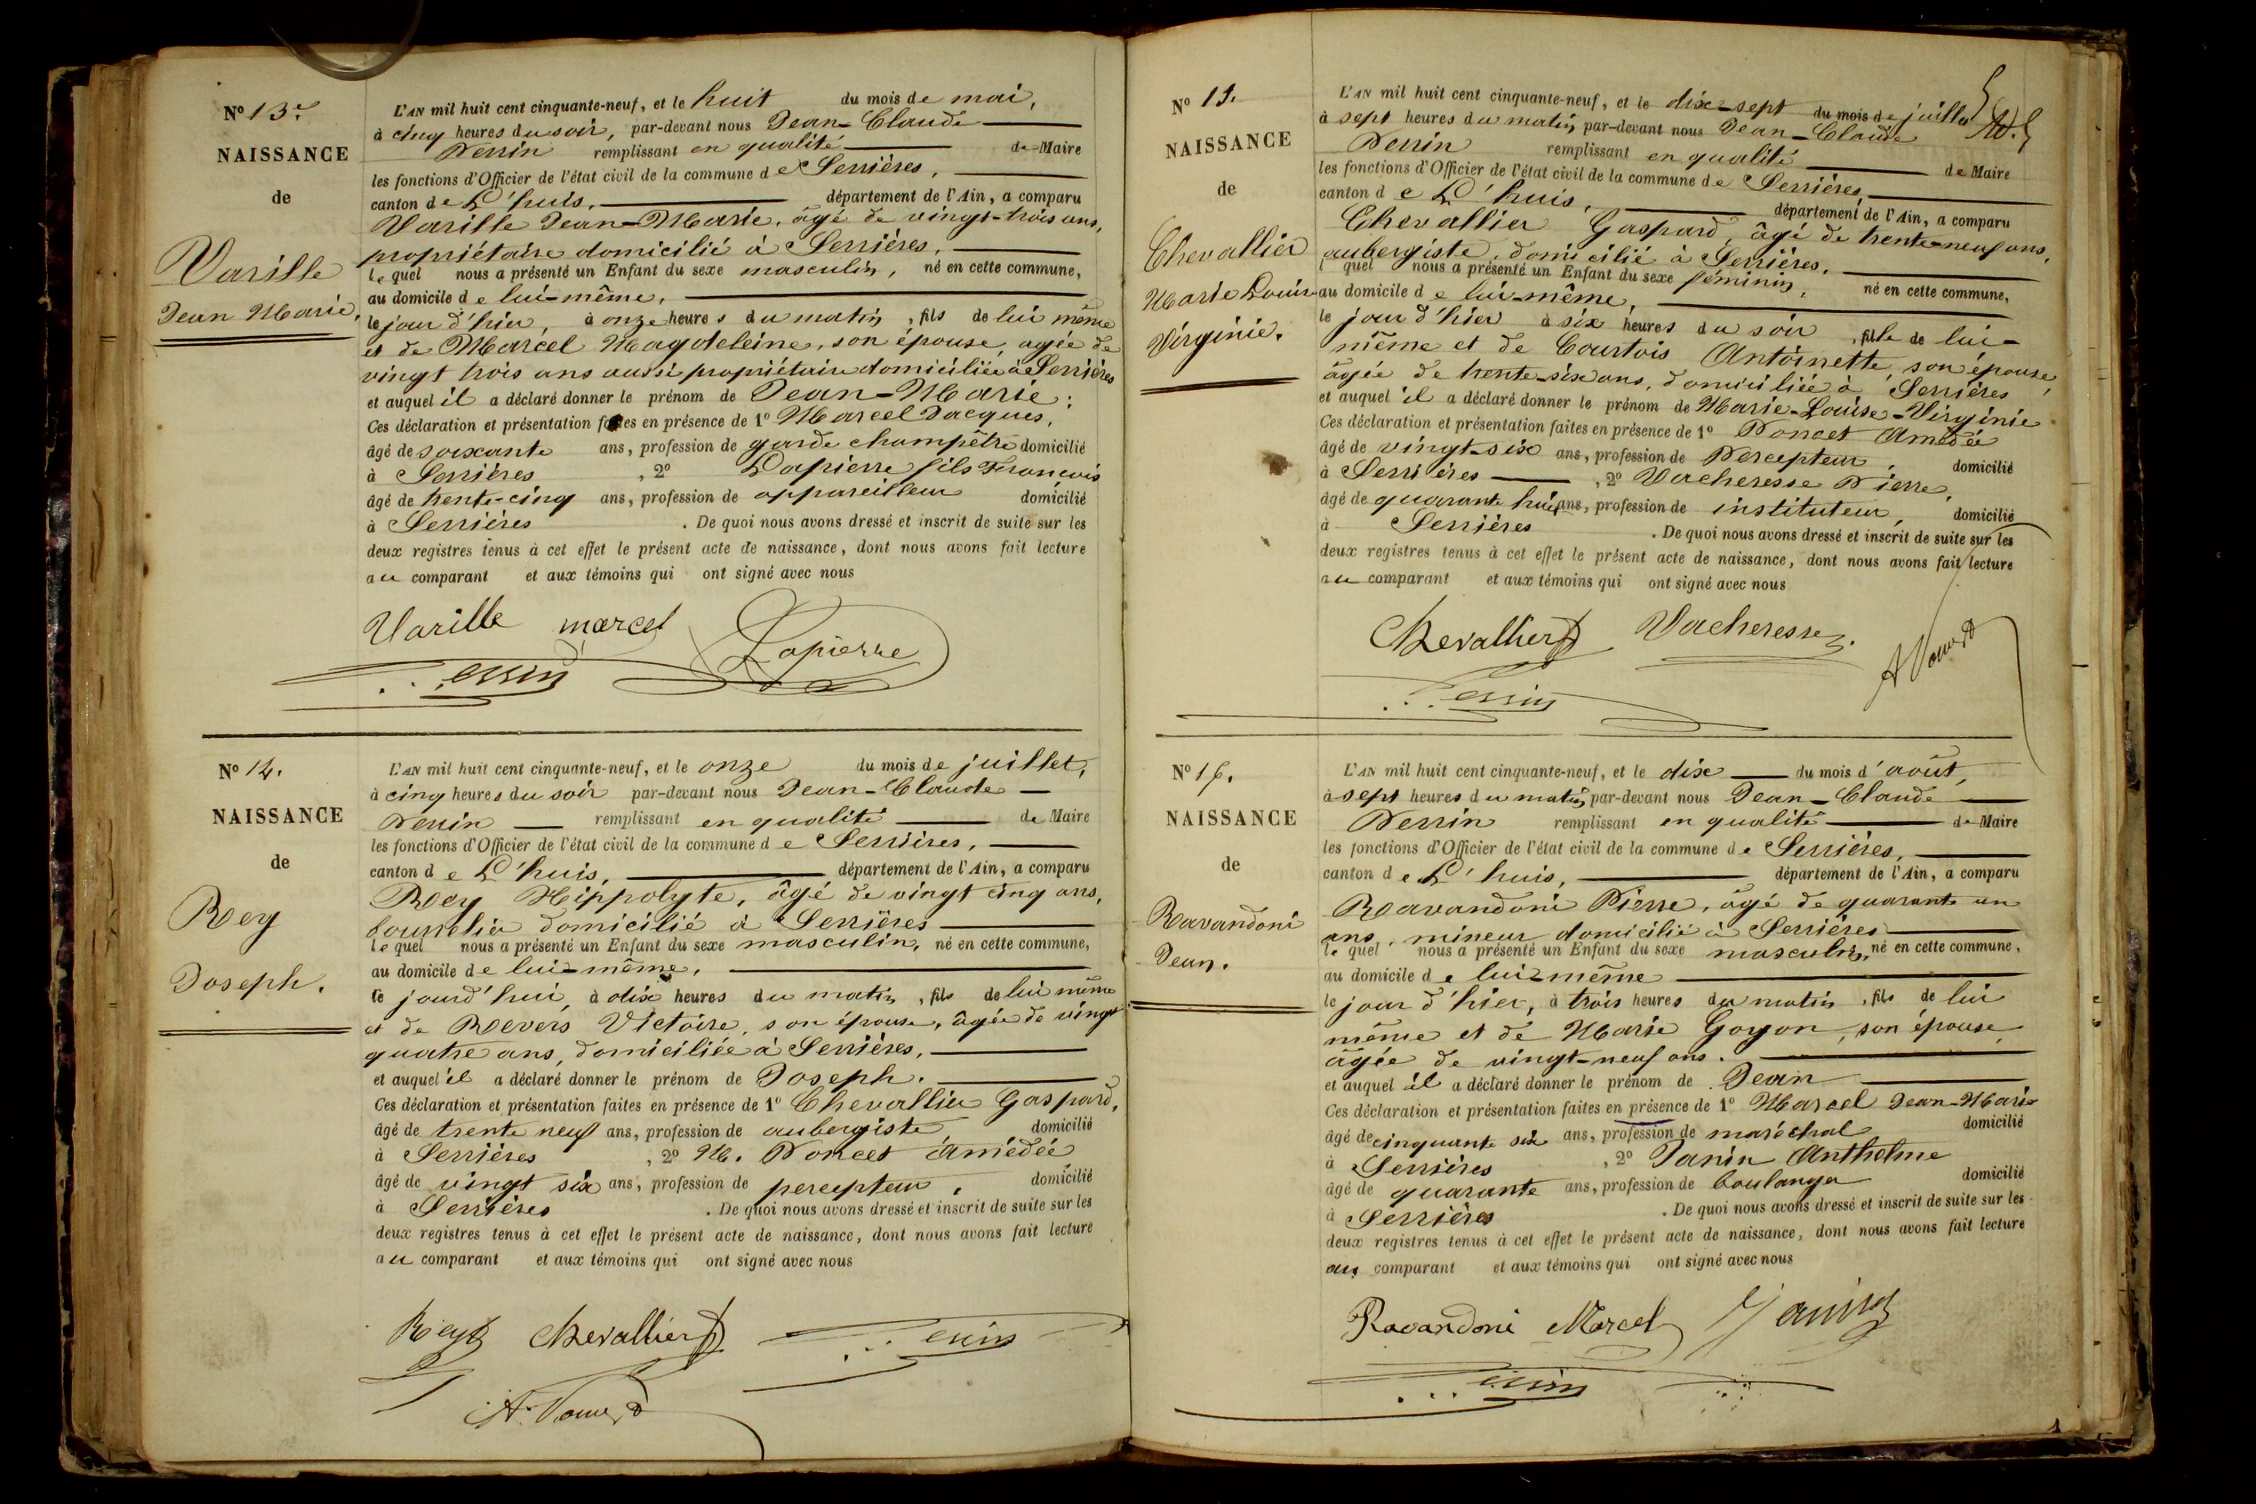 N° 13.
NAISSANCE
de
Varille
Jean Marie.
L'AN mil huit cent cinquante-neuf, et le huit du mois de mai,
à cinq heures du soir, par-devant nous Jean-Claude
Perrin remplissant en qualité de Maire
les fonctions d'Officier de l'état civil de la commune de Serrières,
canton de L'huis, département de l'Ain, a comparu
Varille Jean-Marie, âgé de vingt-trois ans,
propriétaire domicilié à Serrières,
lequel nous a présenté un Enfant du sexe masculin, né en cette commune,
au domicile de lui-même,
le jour d'hier, à onze heures du matin, fils de lui même
et de Marcel Magdeleine, son épouse, agée de
vingt trois ans aussi propriétaire domiciliée à Serrières
et auquel il a déclaré donner le prénom de Jean-Marie;
Ces déclaration et présentation faites en présence de 1° Marcel Jacques,
âgé de soixante ans, profession de garde champêtre domicilié
à Serrières, 2° Lapierre fils François
âgé de trente-cinq ans, profession de appareilleur domicilié
à Serrières. De quoi nous avons dressé et inscrit de suite sur les
deux registres tenus à cet effet le présent acte de naissance, dont nous avons fait lecture
au comparant et aux témoins qui ont signé avec nous
Varille marcel Lapierre
Perrin
N° 14.
NAISSANCE
de
Rey
Joseph.
L'AN mil huit cent cinquante-neuf, et le onze du mois de juillet,
à cinq heures du soir par-devant nous Jean-Claude
Perrin remplissant en qualité de Maire
les fonctions d'Officier de l'état civil de la commune de Serrières,
canton de L'huis, département de l'Ain, a comparu
Rey Hippolyte, âgé de vingt cinq ans,
bourrelier domicilié à Serrières
lequel nous a présenté un Enfant du sexe masculin, né en cette commune,
au domicile de lui-même,
ce jourd'hui, à dix heures du matin, fils de lui même
et de Revers Victoire, son épouse, âgée de vingt
quatre ans, domiciliée à Serrières,
et auquel il a déclaré donner le prénom de Joseph.
Ces déclaration et présentation faites en présence de 1° Chevallier Gaspard,
âgé de trente neuf ans, profession de aubergiste, domicilié
à Serrières, 2° M. Poncet Amédée
âgé de vingt six ans, profession de percepteur, domicilié
à Serrières. De quoi nous avons dressé et inscrit de suite sur les
deux registres tenus à cet effet le présent acte de naissance, dont nous avons fait lecture
au comparant et aux témoins qui ont signé avec nous
Rey Chevallier Perrin
A. Poncet
N° 15.
NAISSANCE
de
Chevallier
Marie Louise
Virginie.
L'AN mil huit cent cinquante-neuf, et le dix-sept du mois de juillet
à sept heures du matin, par-devant nous Jean-Claude
Perrin remplissant en qualité de Maire
les fonctions d'Officier de l'état civil de la commune de Serrières
canton de L'huis, département de l'Ain, a comparu
Chevallier Gaspard, âgé de trente-neuf ans,
aubergiste, domicilié à Serrières,
lequel nous a présenté un Enfant du sexe féminin, né en cette commune,
au domicile de lui-même,
le jour d'hier à six heures du soir, fille de lui-
même et de Courtois Antoinette, son épouse,
âgée de trente-six ans, domiciliée à Serrières,
et auquel il a déclaré donner le prénom de Marie-Louise-Virginie
Ces déclaration et présentation faites en présence de 1° Poncet Amédée
âgé de vingt-six ans, profession de Percepteur, domicilié
à Serrières, 2° Vacheresse Pierre,
âgé de quarante huit ans, profession de instituteur, domicilié
à Serrières. De quoi nous avons dressé et inscrit de suite sur les
deux registres tenus à cet effet le présent acte de naissance, dont nous avons fait lecture
au comparant et aux témoins qui ont signé avec nous
Chevallier Vacheresse A Poncet
Perrin
N° 16.
NAISSANCE
de
Ravandoni
Jean.
L'AN mil huit cent cinquante-neuf, et le dix du mois d'août,
à sept heures du matin, par-devant nous Jean-Claude
Perrin remplissant en qualité de Maire
les fonctions d'Officier de l'état civil de la commune de Serrières,
canton de L'huis, département de l'Ain, a comparu
Ravandoni Pierre, âgé de quarante un
ans, mineur domicilié à Serrières
lequel nous a présenté un Enfant du sexe masculin, né en cette commune,
au domicile de lui-même
le jour d'hier, à trois heures du matin, fils de lui
même et de Marie Goyon, son épouse,
âgée de vingt-neuf ans.
et auquel il a déclaré donner le prénom de Jean
Ces déclaration et présentation faites en présence de 1° Marcel Jean-Marie
âgé de cinquante six ans, profession de maréchal domicilié
à Serrières, 2° Janin Anthelme
âgé de quarante ans, profession de boulanger domicilié
à Serrières. De quoi nous avons dressé et inscrit de suite sur les
deux registres tenus à cet effet le présent acte de naissance, dont nous avons fait lecture
aux comparant et aux témoins qui ont signé avec nous
Ravandoni Marcel Janin
Perrin